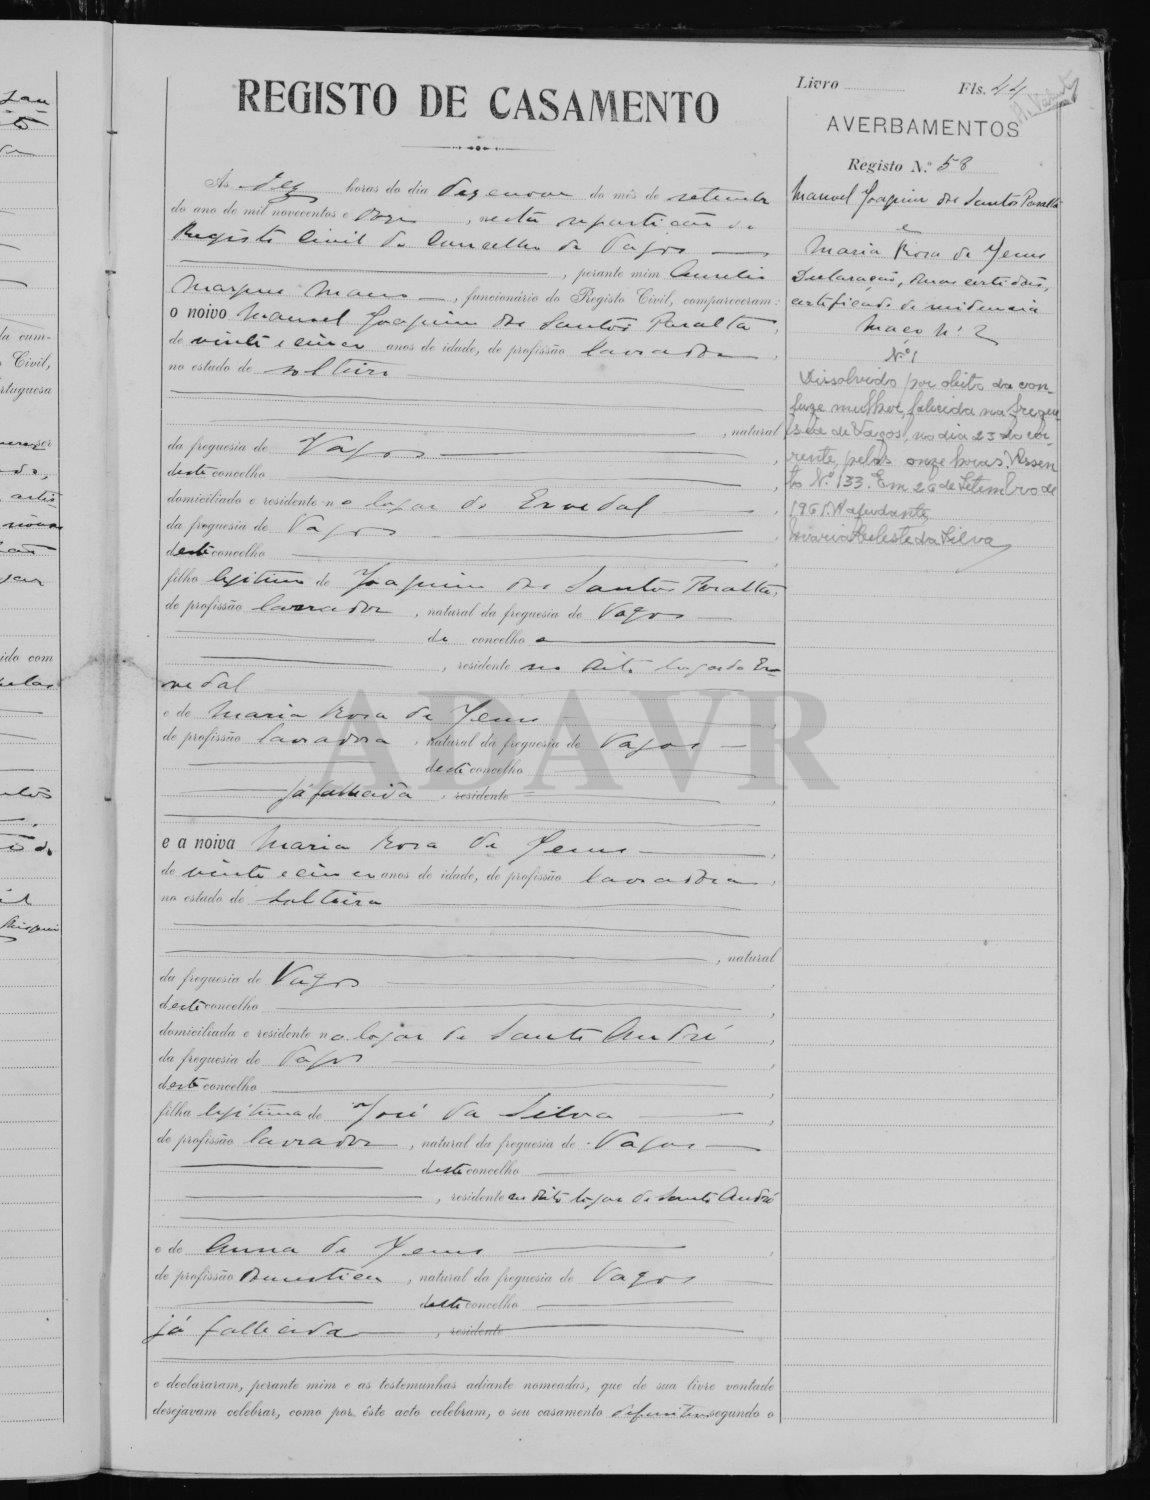 REGISTO DE CASAMENTO
Livro
Fls. 44
AVERBAMENTOS
Registo N.º 58
Manuel Joaquim dos Santos Peralta
e
Maria Rosa de Jesus
Declaração, duas certidões,
certificado de residencia
Maço Nº 2
Nº 1
Dissolvido por óbito da con-
juge mulher, falecida na fregue-
sia de Vagos, no dia 23 do cor-
rente, pelas onze horas. Assen-
to Nº 133. Em 26 de Setembro de
1961. A ajudante,
Maria Celeste da Silva
Às dez horas do dia dezenove do mês de setembro
do ano de mil novecentos e doze, nesta repartição do
Registo Civil do Concelho de Vagos
, perante mim Aurelio
Marques Mano, funcionário do Registo Civil, compareceram:
o noivo Manuel Joaquim dos Santos Peralta,
de vinte e cinco anos de idade, de profissão lavrador,
no estado de solteiro
, natural
da freguesia de Vagos,
deste concelho,
domiciliado e residente no logar do Ervedal,
da freguesia de Vagos,
deste concelho,
filho legitimo de Joaquim dos Santos Peralta,
de profissão lavrador, natural da freguesia de Vagos
de concelho e
, residente no dito logar do Er-
vedal
e de Maria Rosa de Jesus,
de profissão lavradora, natural da freguesia de Vagos
deste concelho
já fallecida, residente
e a noiva Maria Rosa de Jesus,
de vinte e cinco anos de idade, de profissão lavradora,
no estado de solteira
, natural
da freguesia de Vagos,
deste concelho,
domiciliada e residente no logar de Santo André,
da freguesia de Vagos,
deste concelho,
filha legitima de José da Silva,
de profissão lavrador, natural da freguesia de Vagos
deste concelho
, residente no dito logar de Santo André
e de Anna de Jesus,
de profissão domestica, natural da freguesia de Vagos
deste concelho
já fallecida, residente
e declararam, perante mim e as testemunhas adiante nomeadas, que de sua livre vontade
desejavam celebrar, como por êste acto celebram, o seu casamento definitivo segundo o
ADAVR